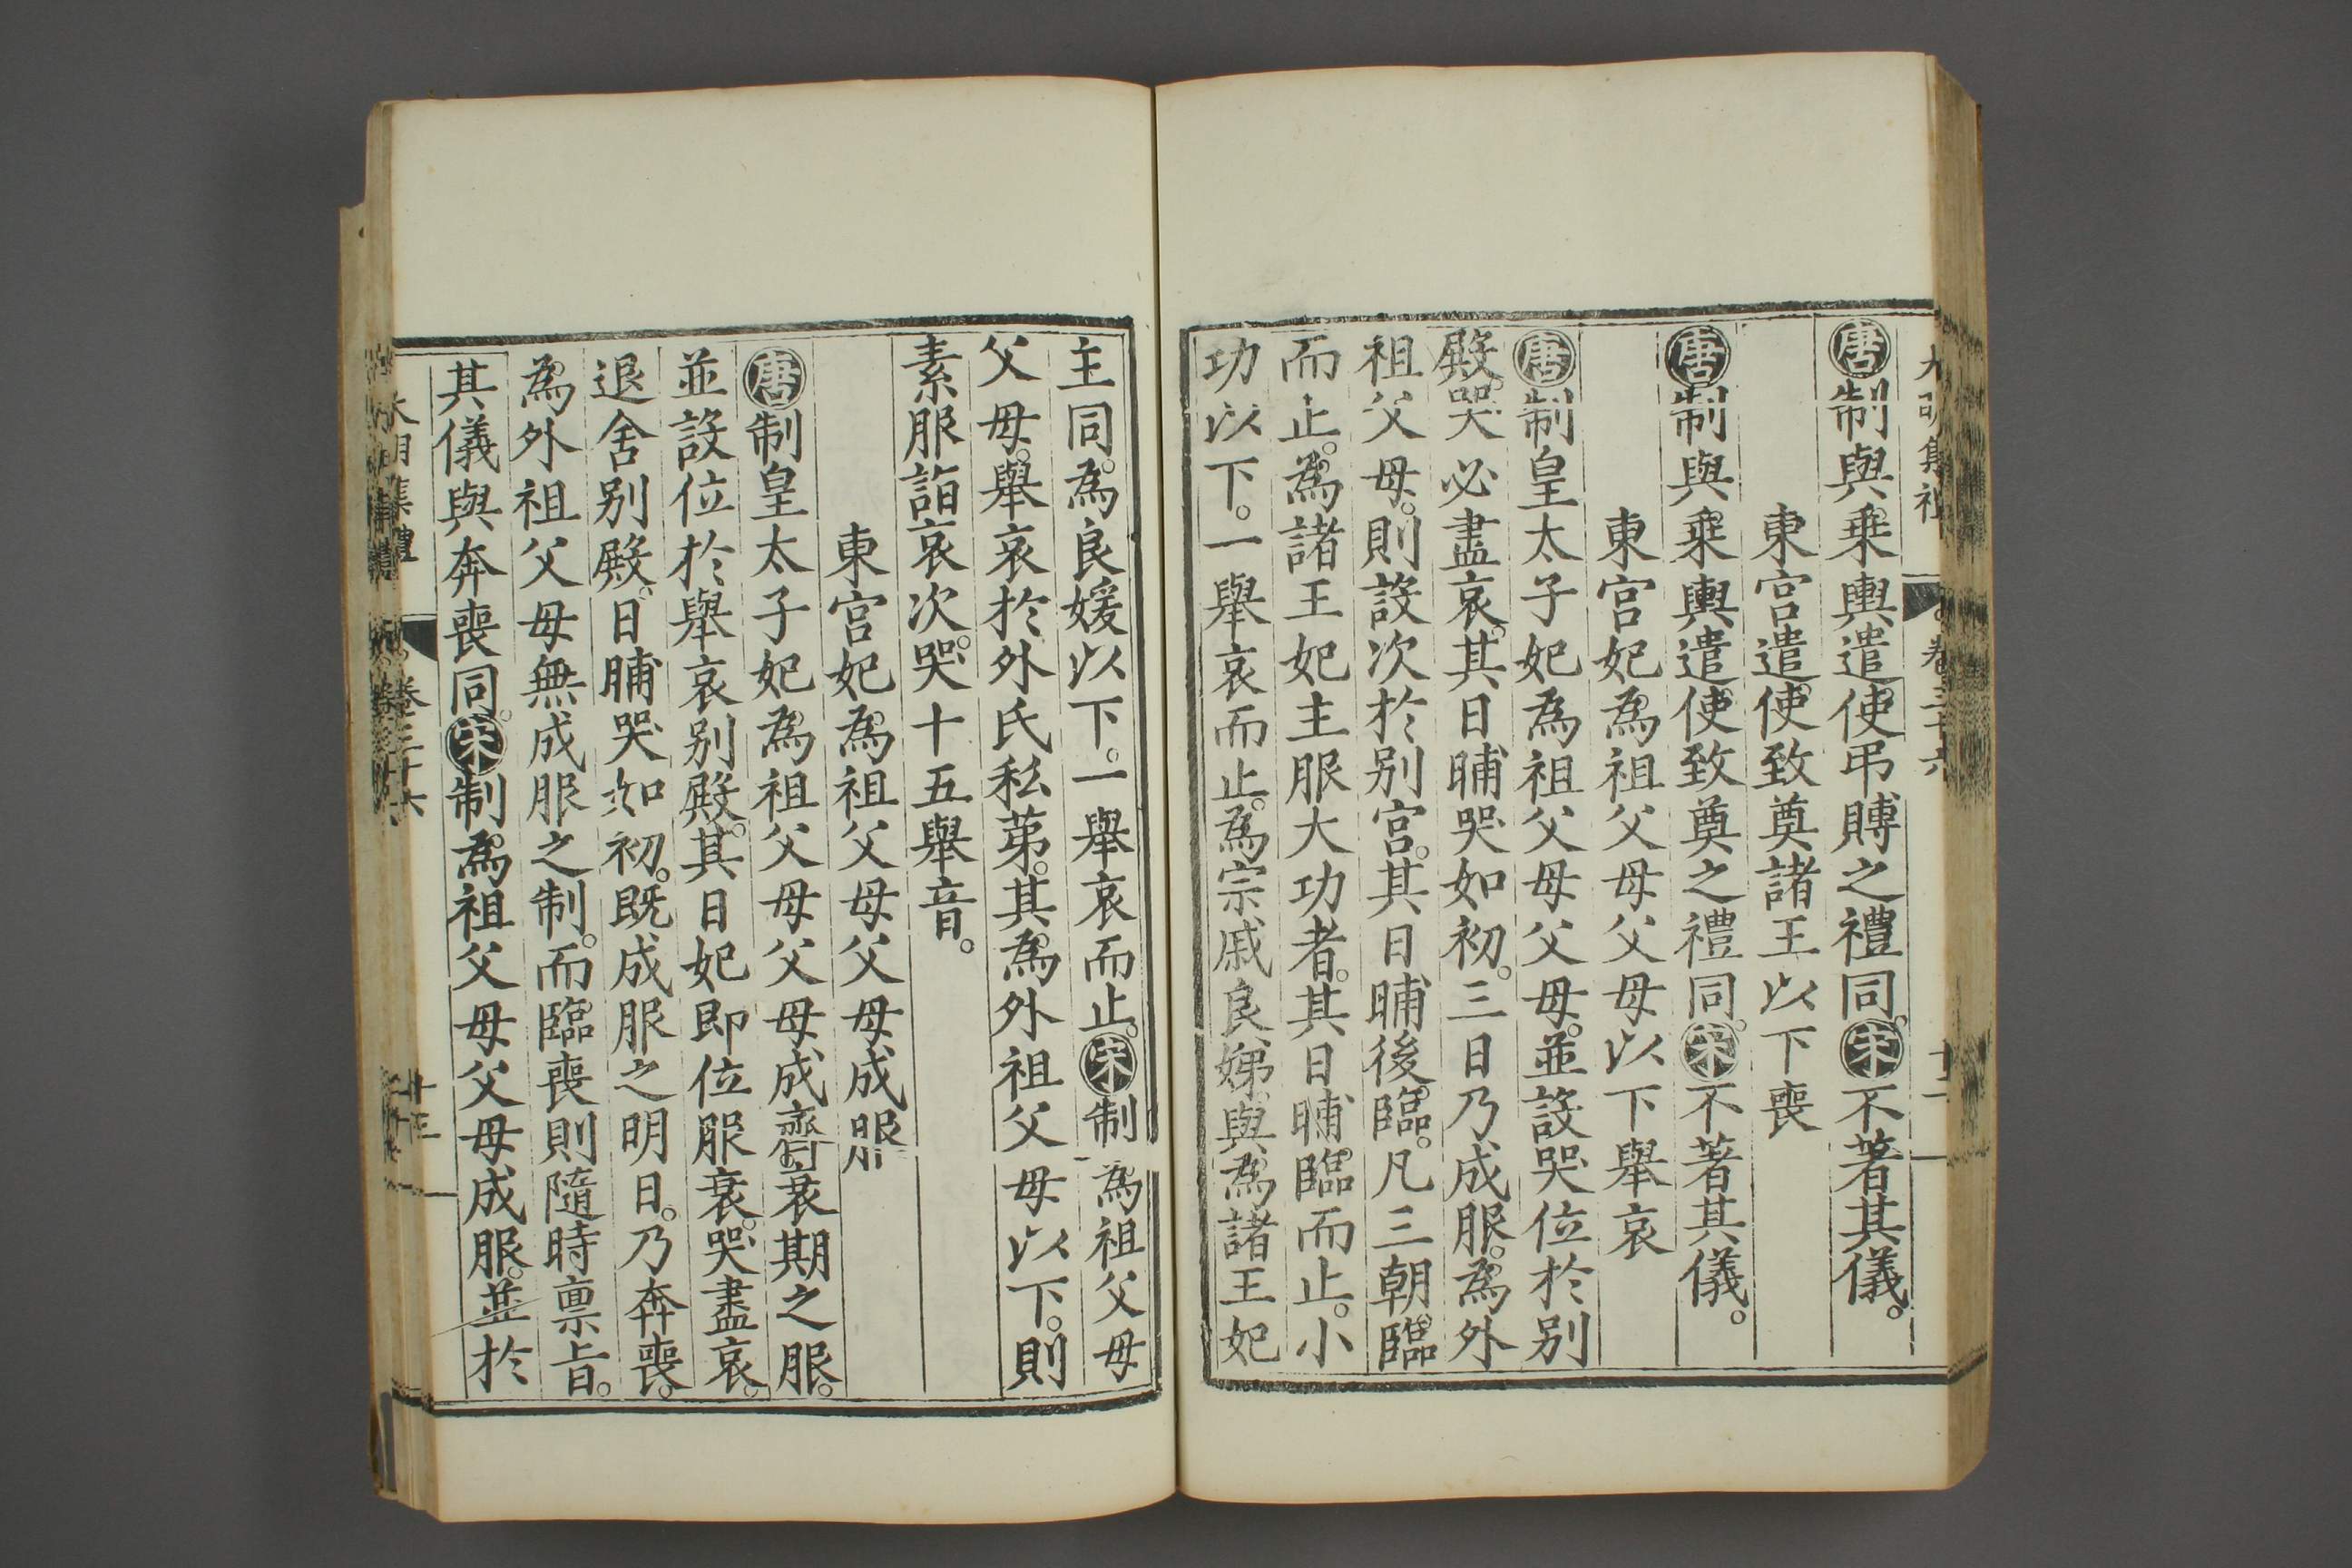 大明集禮 卷三十六
唐制與乗輿遣使弔賻之禮同。宋不著其儀。
東宮遣使致奠諸王以下喪
唐制與乗輿遣使致奠之禮同。宋不著其儀。
東宮妃為祖父母父母以下舉哀
唐制皇太子妃為祖父母父母並設哭位於别
殿哭必盡哀其日晡哭如初。三日乃成服為外
祖父母。則設次於别宮其日晡後臨。凡三朝臨
而止。為諸王妃主服大功者其日晡臨而止。小
功以下。一舉哀而止為宗戚良娣與為諸王妃
主同為良媛以下。一舉哀而止。宋制為祖父母
父母舉哀於外氏私苐其為外祖父母以下。則
素服詣哀次哭十五舉音。
東宮妃為祖父母父母成服
唐制皇太子妃為祖父母父母成齊衰期之服。
並設位於舉哀别殿其日妃即位服衰哭盡哀。
退舍别殿日晡哭如初。既成服之明日。乃奔喪。
為外祖父母無成服之制。而臨喪則隨時禀旨。
其儀與奔喪同。宋制為祖父母父母成服並於
大明集禮 卷三十六 十三